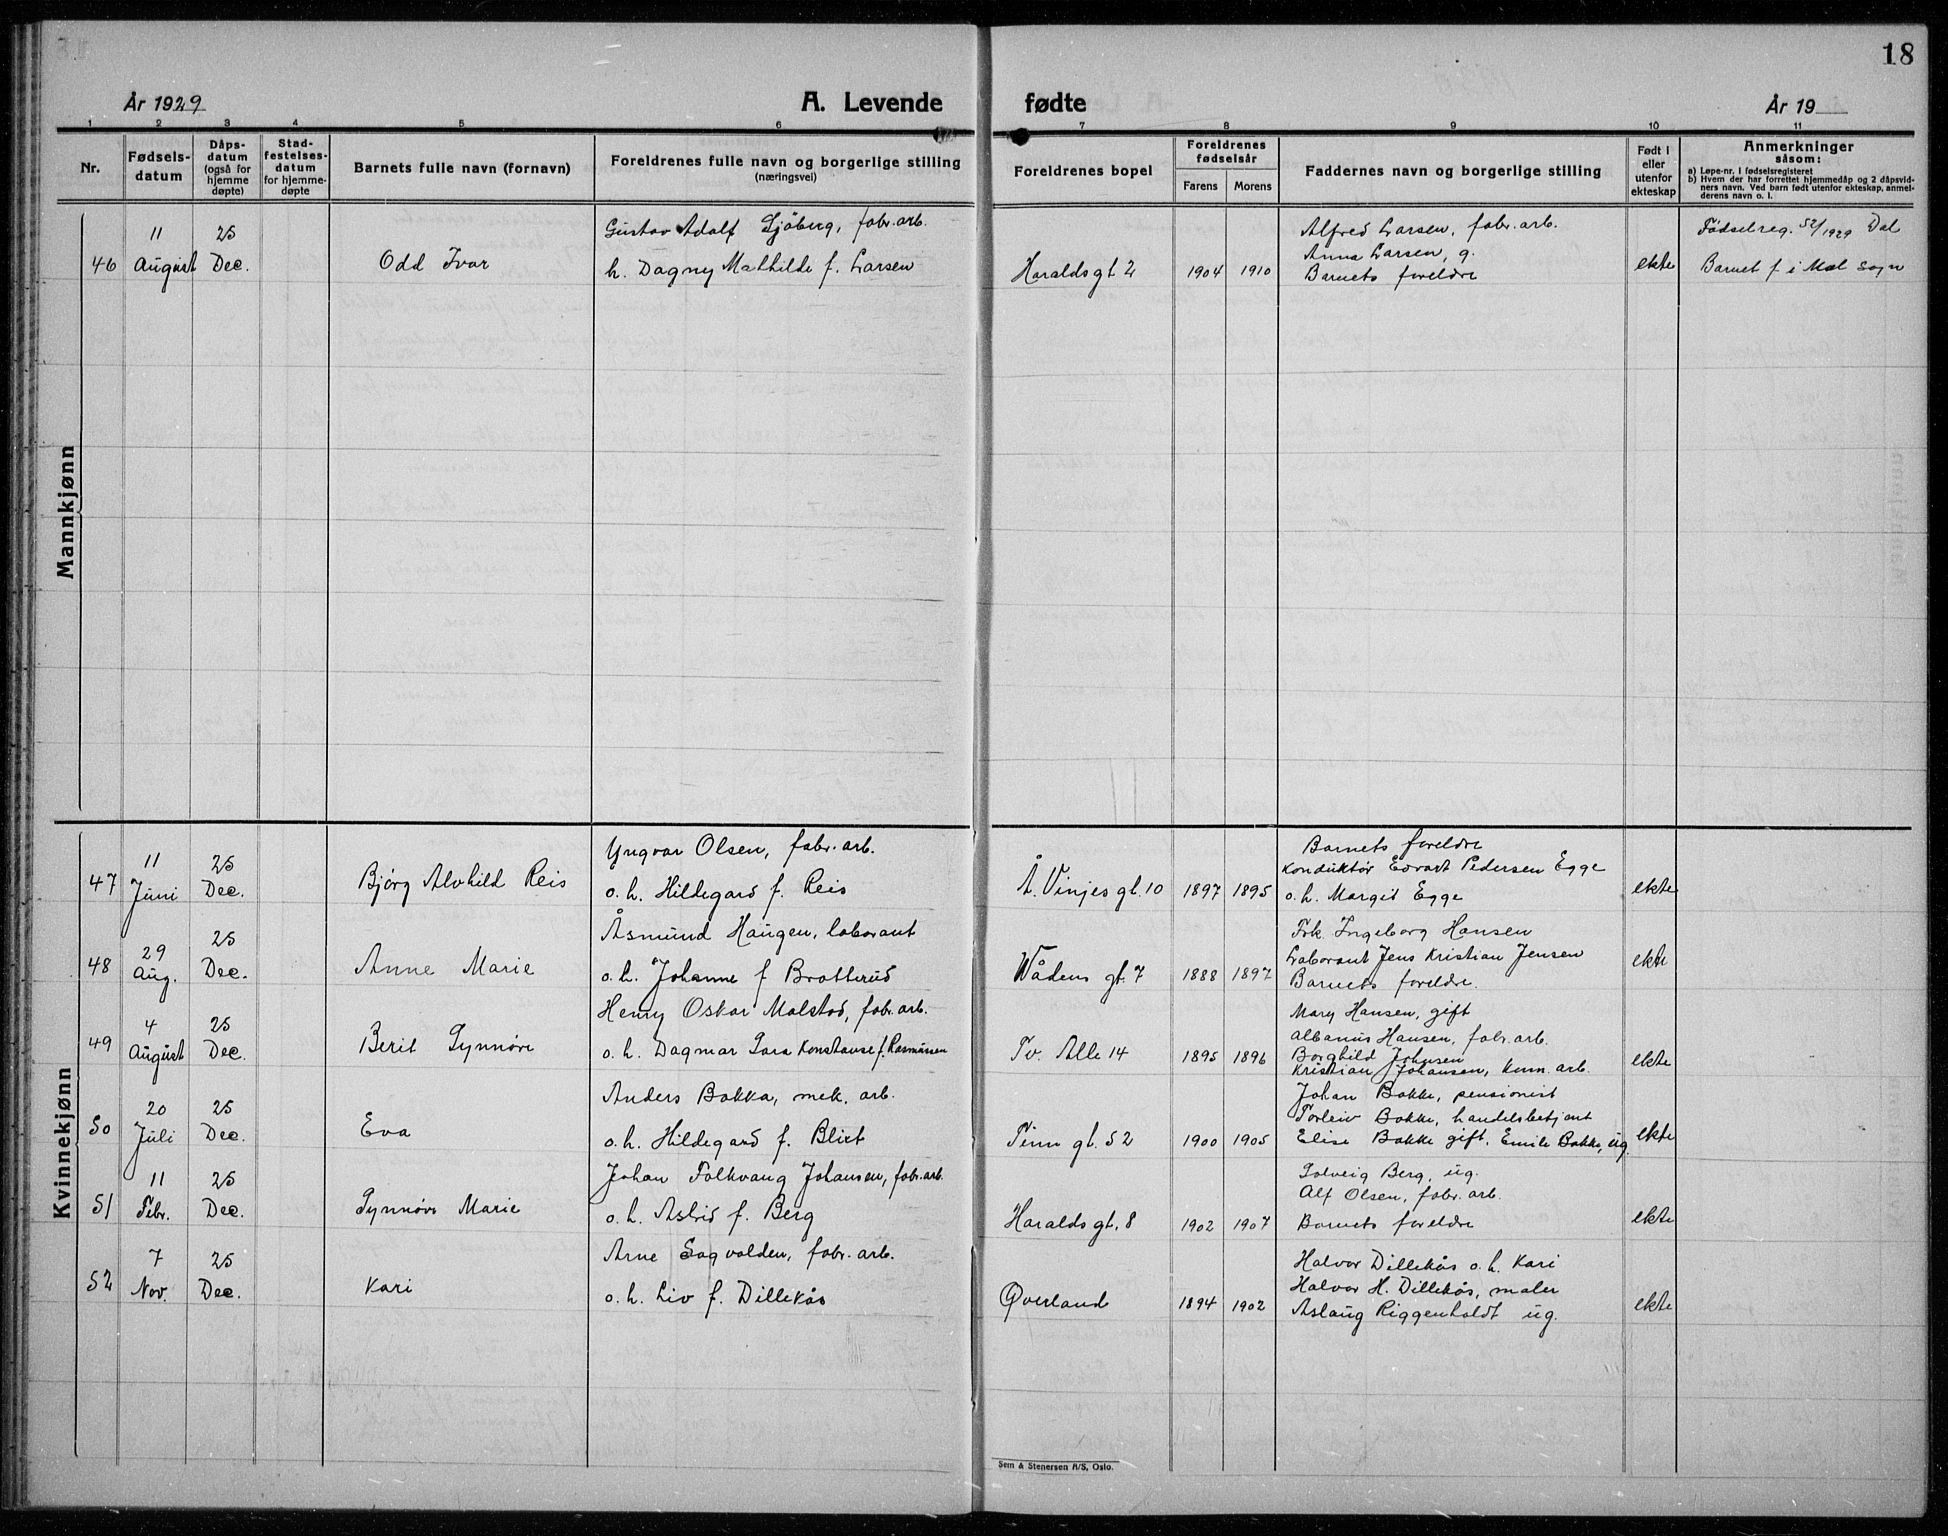 18
År 1929 A. Levende fødte År 19
1 2 3 4 5 6 7 8 9 10 11
Nr.
Fødsels-
datum
Dåps-
datum
(også for
hjemme
døpte)
Stad-
festelses-
datum
for hjemme-
døpte
Barnets fulle navn (fornavn)
Foreldrenes fulle navn og borgerlige stilling
(næringsvei)
Foreldrenes bopel
Foreldrenes
fødselsår
Farens Morens
Faddernes navn og borgerlige stilling
Født i
eller
utenfor
ekteskap
Anmerkninger
såsom:
a) Løpe-nr. i fødselsregisteret
b) Hvem der har forrettet hjemmedåp og 2 dåpsvid-
ners navn. Ved barn født utenfor ekteskap, anmel-
derens navn o. l.
Mannkjønn
46
11
August
25
Dec.
Odd Ivar
Gustav Adolf Sjöberg, fabr. arb.
h. Dagny Mathilde f. Larsen
Haralds gt 2
1904 1910
Alfred Larsen, fabr. arb.
Anna Larsen, g.
Barnets foreldre
ekte
Fødselreg. 52/1929 Dal
Barnet f. i Mæl sogn
Kvinnekjønn
47
11
Juni
25
Dec.
Bjørg Alvhild Reis
Yngvar Olsen, fabr. arb.
o. h. Hildegard f. Reis
Å. Vinjes gt. 10
1897 1895
Barnets foreldre
Konduktør Edvart Pedersen Egge
o. h. Margit Egge
ekte
48
29
Aug.
25
Dec.
Anne Marie
Åsmund Haugen, laborant
o. h. Johanne f Bratterud
Wådens gt. 7
1888 1897
Frk. Ingeborg Hansen
Laborant Jens Kristian Jensen
Barnets foreldre.
ekte
49
4
August
25
Dec.
Berit Synnøve
Henry Oskar Malstad, fabr. arb.
o. h. Dagmar Sara Konstanse f. Rasmussen
Tv. Alle 14
1895 1896
Mary Hansen, gift
Albanus Hansen, fabr. arb.
Borghild Johnsen
Kristian Johansen, kom. arb.
ekte
50
20
Juli
25
Dec.
Eva
Anders Bakka, mek. arb.
o. h. Hildegard f. Blixt
Tinn gt. 52
1900 1905
Johan Bakke, pensionist
Torleiv Bakke, handelsbetjent
Elise Bakke gift, Emile Bakke, ug.
ekte
51
11
Febr.
25
Dec.
Synnøve Marie
Johan Folkvang Johansen, fabr. arb.
o. h. Astrid f. Berg
Haralds gt. 8
1902 1907
Solveig Berg, ug.
Alf Olsen, fabr. arb.
Barnets foreldre
ekte
52
7
Nov.
25
Dec.
Kari
Arne Sagvolden, fabr. arb.
o. h. Liv f. Dillekås
Øverland
1894 1902
Halvor Dillekås o. h. Kari
Halvor H. Dillekås, maler
Aslaug Riggenholdt ug.
ekte
Sem & Stenersen A/S, Oslo.